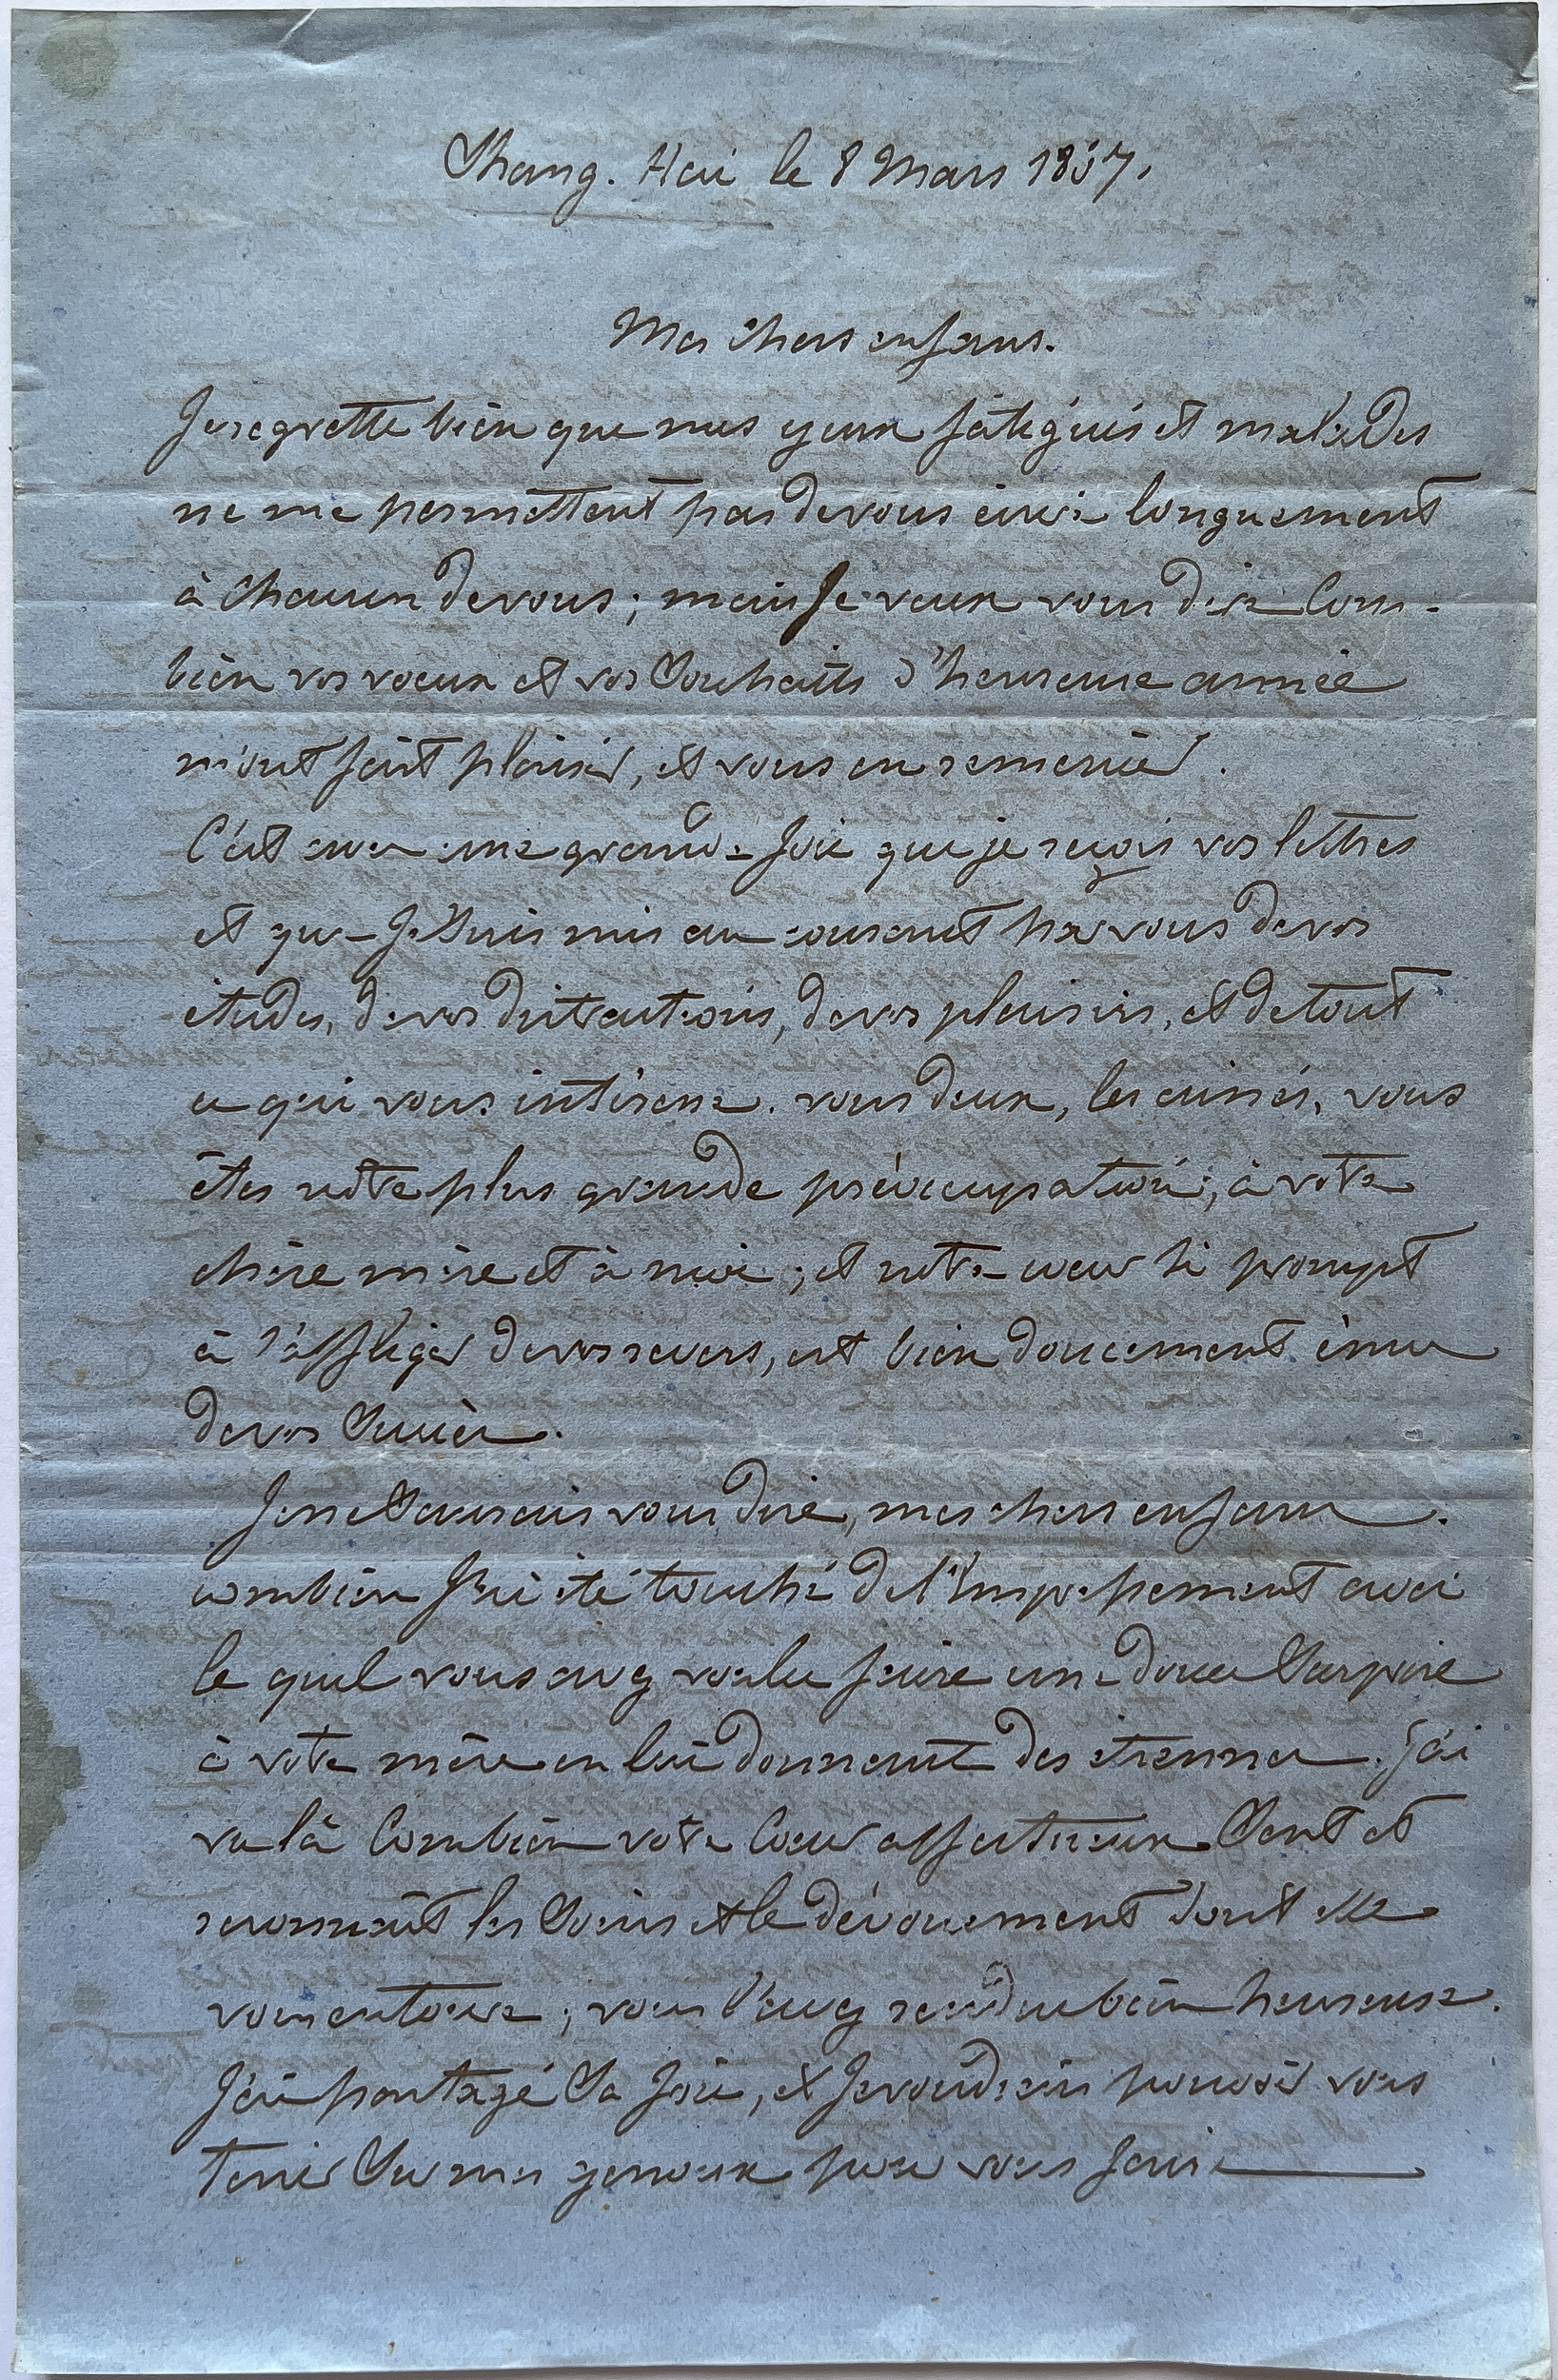 Shang. Hai le 8 Mars 1857.
Mes chers enfans.
Je regrette bien que mes yeux fatigués et malades
ne me permettent pas de vous écrire longuement
à chacun de vous ; mais Je veux vous dire Com-
bien vos voeux et vos Souhaits d'heureuse année
m'ont fait plaisir, et vous en remercier.
C'est avec une grande Joie que je reçois vos lettres
et que Je Suis mis au courant par vous de vos
études, de vos distractions, de vos plaisirs, et de tout
ce qui vous intéresse. vous deux, les ainés, vous
êtes notre plus grande préoccupation, à votre
chère mère et à moi ; et notre coeur si prompt
à s'affliger de vos revers, est bien doucement ému
de vos Succès.
Je ne Saurais vous dire, mes chers enfans.
combien J'ai été touché de l'empressement avec
le quel vous avez voulu faire une douce Surprise
à votre mère en lui donnant des étrennes. J'ai
vu là Combien votre Coeur affectueux Sent et
reconnait les Soins et le dévouement dont elle
vous entoure ; vous l'avez rendu bien heureuse.
J'ai partagé Sa Joie, et Je voudrais pouvoir vous
tenir Sur mes genoux pour vous faire